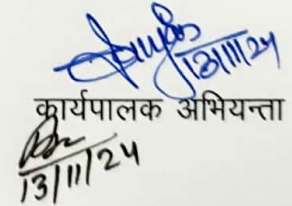 13/11/24
कार्यपालक अभियन्ता
13/11/24